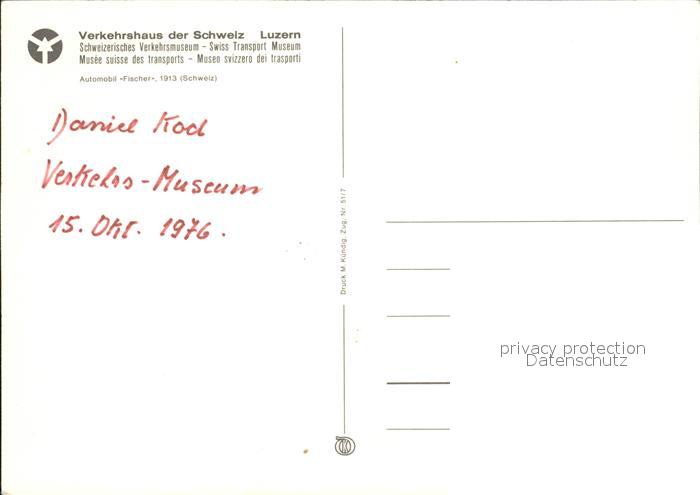 Verkehrshaus der Schweiz Luzern
Schweizerisches Verkehrsmuseum – Swiss Transport Museum
Musée suisse des transports – Museo svizzero dei trasporti
Automobil «Fischer», 1913 (Schweiz)
Daniel Kod
Verkehrs-Museum
15. Okt. 1976.
Druck M. Kündig, Zug, Nr. 51/7
privacy protection
Datenschutz